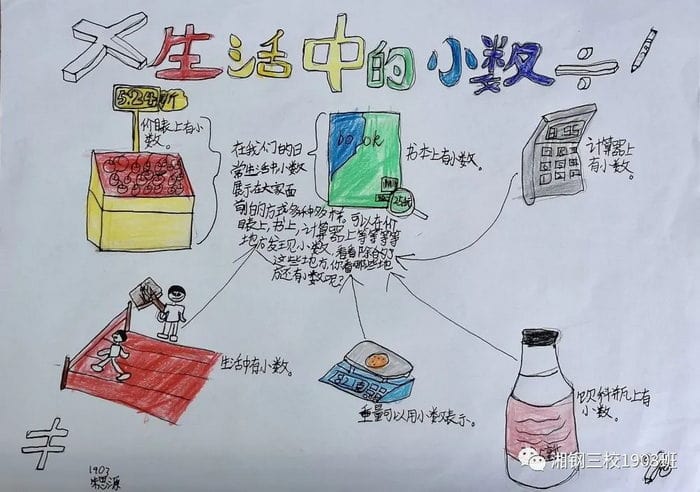 生活中的小数
价目表上有小
数。
在我们的日
常生活中小数
展示在大家面
前的方式多种多样。可以在价
目表上，书上，计算器上等等等等
地方发现小数，看看除合的了
这些地方，你看哪些地
方还有小数呢？
book
书本上有小数。
计算器上
有小数。
生活中有小数。
重量可以用小数表示。
饮料瓶上有
小数。
1903
湘钢三校1903班